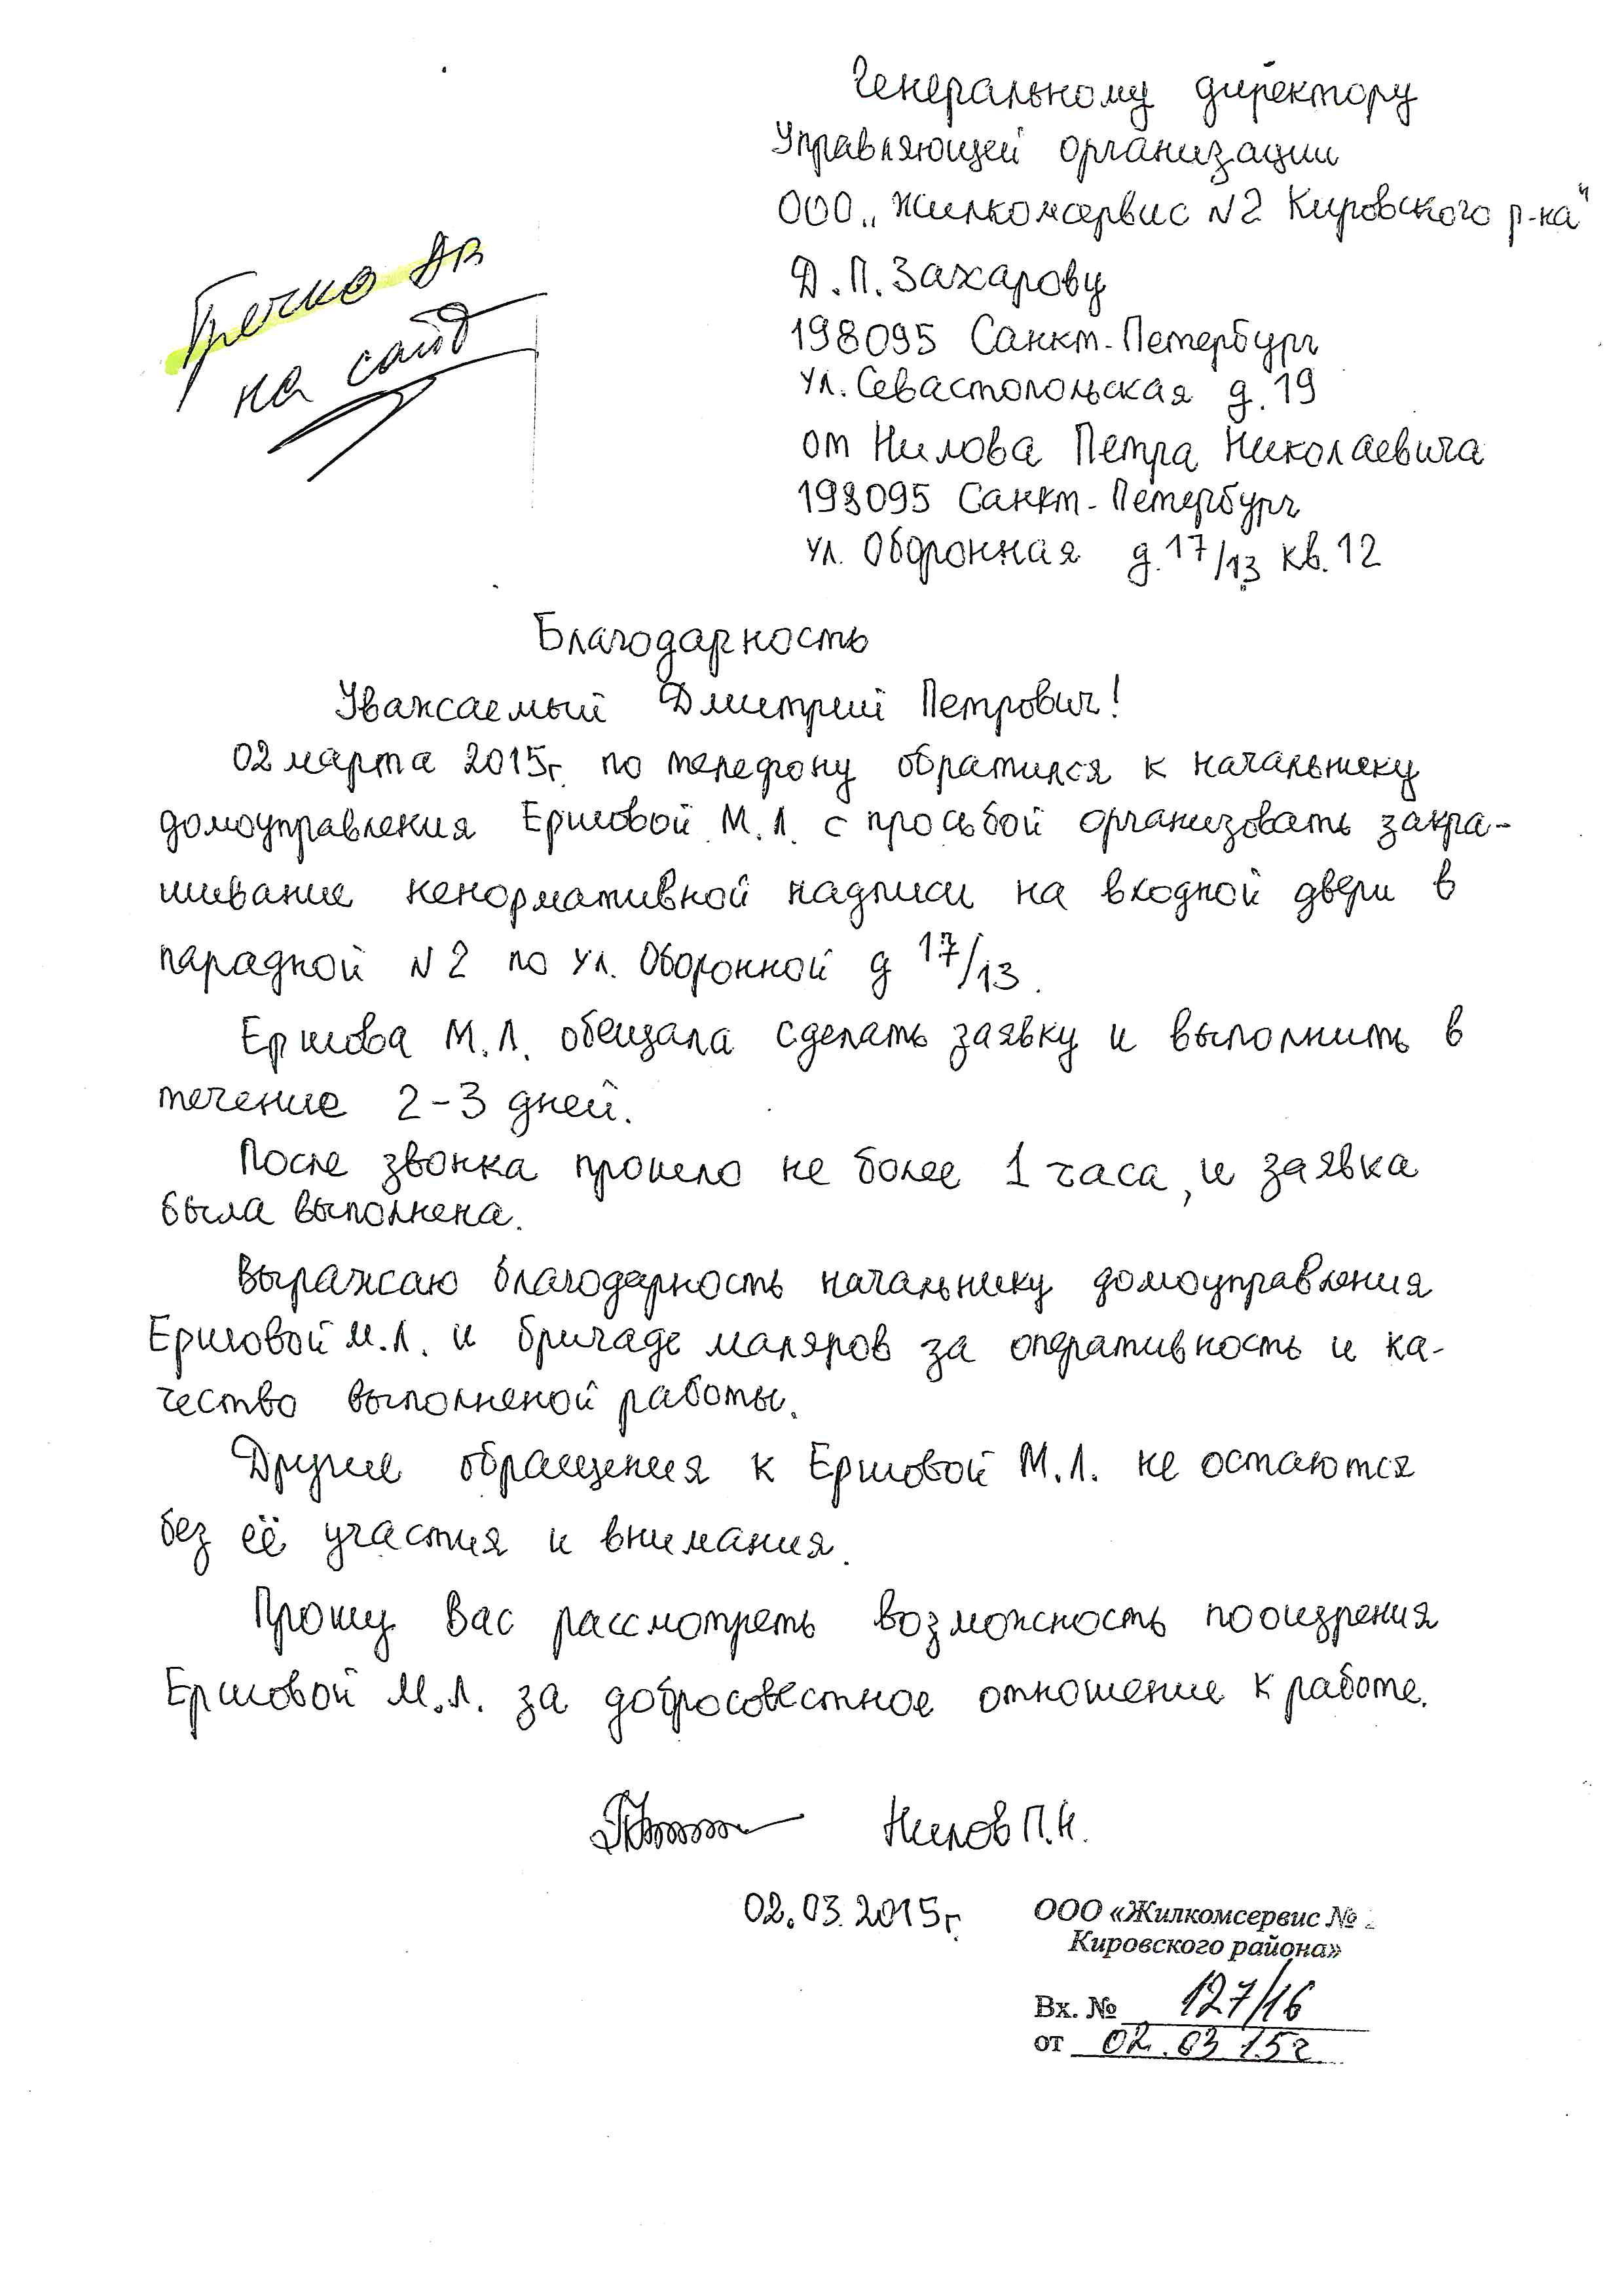 Генеральному директору
Управляющей организации
ООО „Жилкомсервис N2 Кировского р-ка"
Д.П. Захарову
198095 Санкт-Петербург
ул. Севастопольская д. 19
от Нилова Петра Николаевича
198095 Санкт-Петербург
ул. Оборонная д. 17/13 кв. 12
на сайт
Благодарность
Уважаемый Дмитрий Петрович!
02 марта 2015г. по телефону обратился к начальнику
домоуправления Ершовой М.Л. с просьбой организовать закра-
шивание ненормативной надписи на входной двери в
парадной N2 по ул. Оборонной д 17/13.
Ершова М.Л. обещала сделать заявку и выполнить в
течение 2-3 дней.
После звонка прошло не более 1 часа, и заявка
была выполнена.
Выражаю благодарность начальнику домоуправления
Ершовой М.Л. и бригаде маляров за оперативность и ка-
чество выполненой работы.
Другие обращения к Ершовой М.Л. не остаются
без её участия и внимания.
Прошу Вас рассмотреть возможность поощрения
Ершовой М.Л. за добросовестное отношение к работе.
Нилов П.Н.
02.03.2015г.
ООО «Жилкомсервис №
Кировского района»
Вх. № 127/16
от 02.03 15г